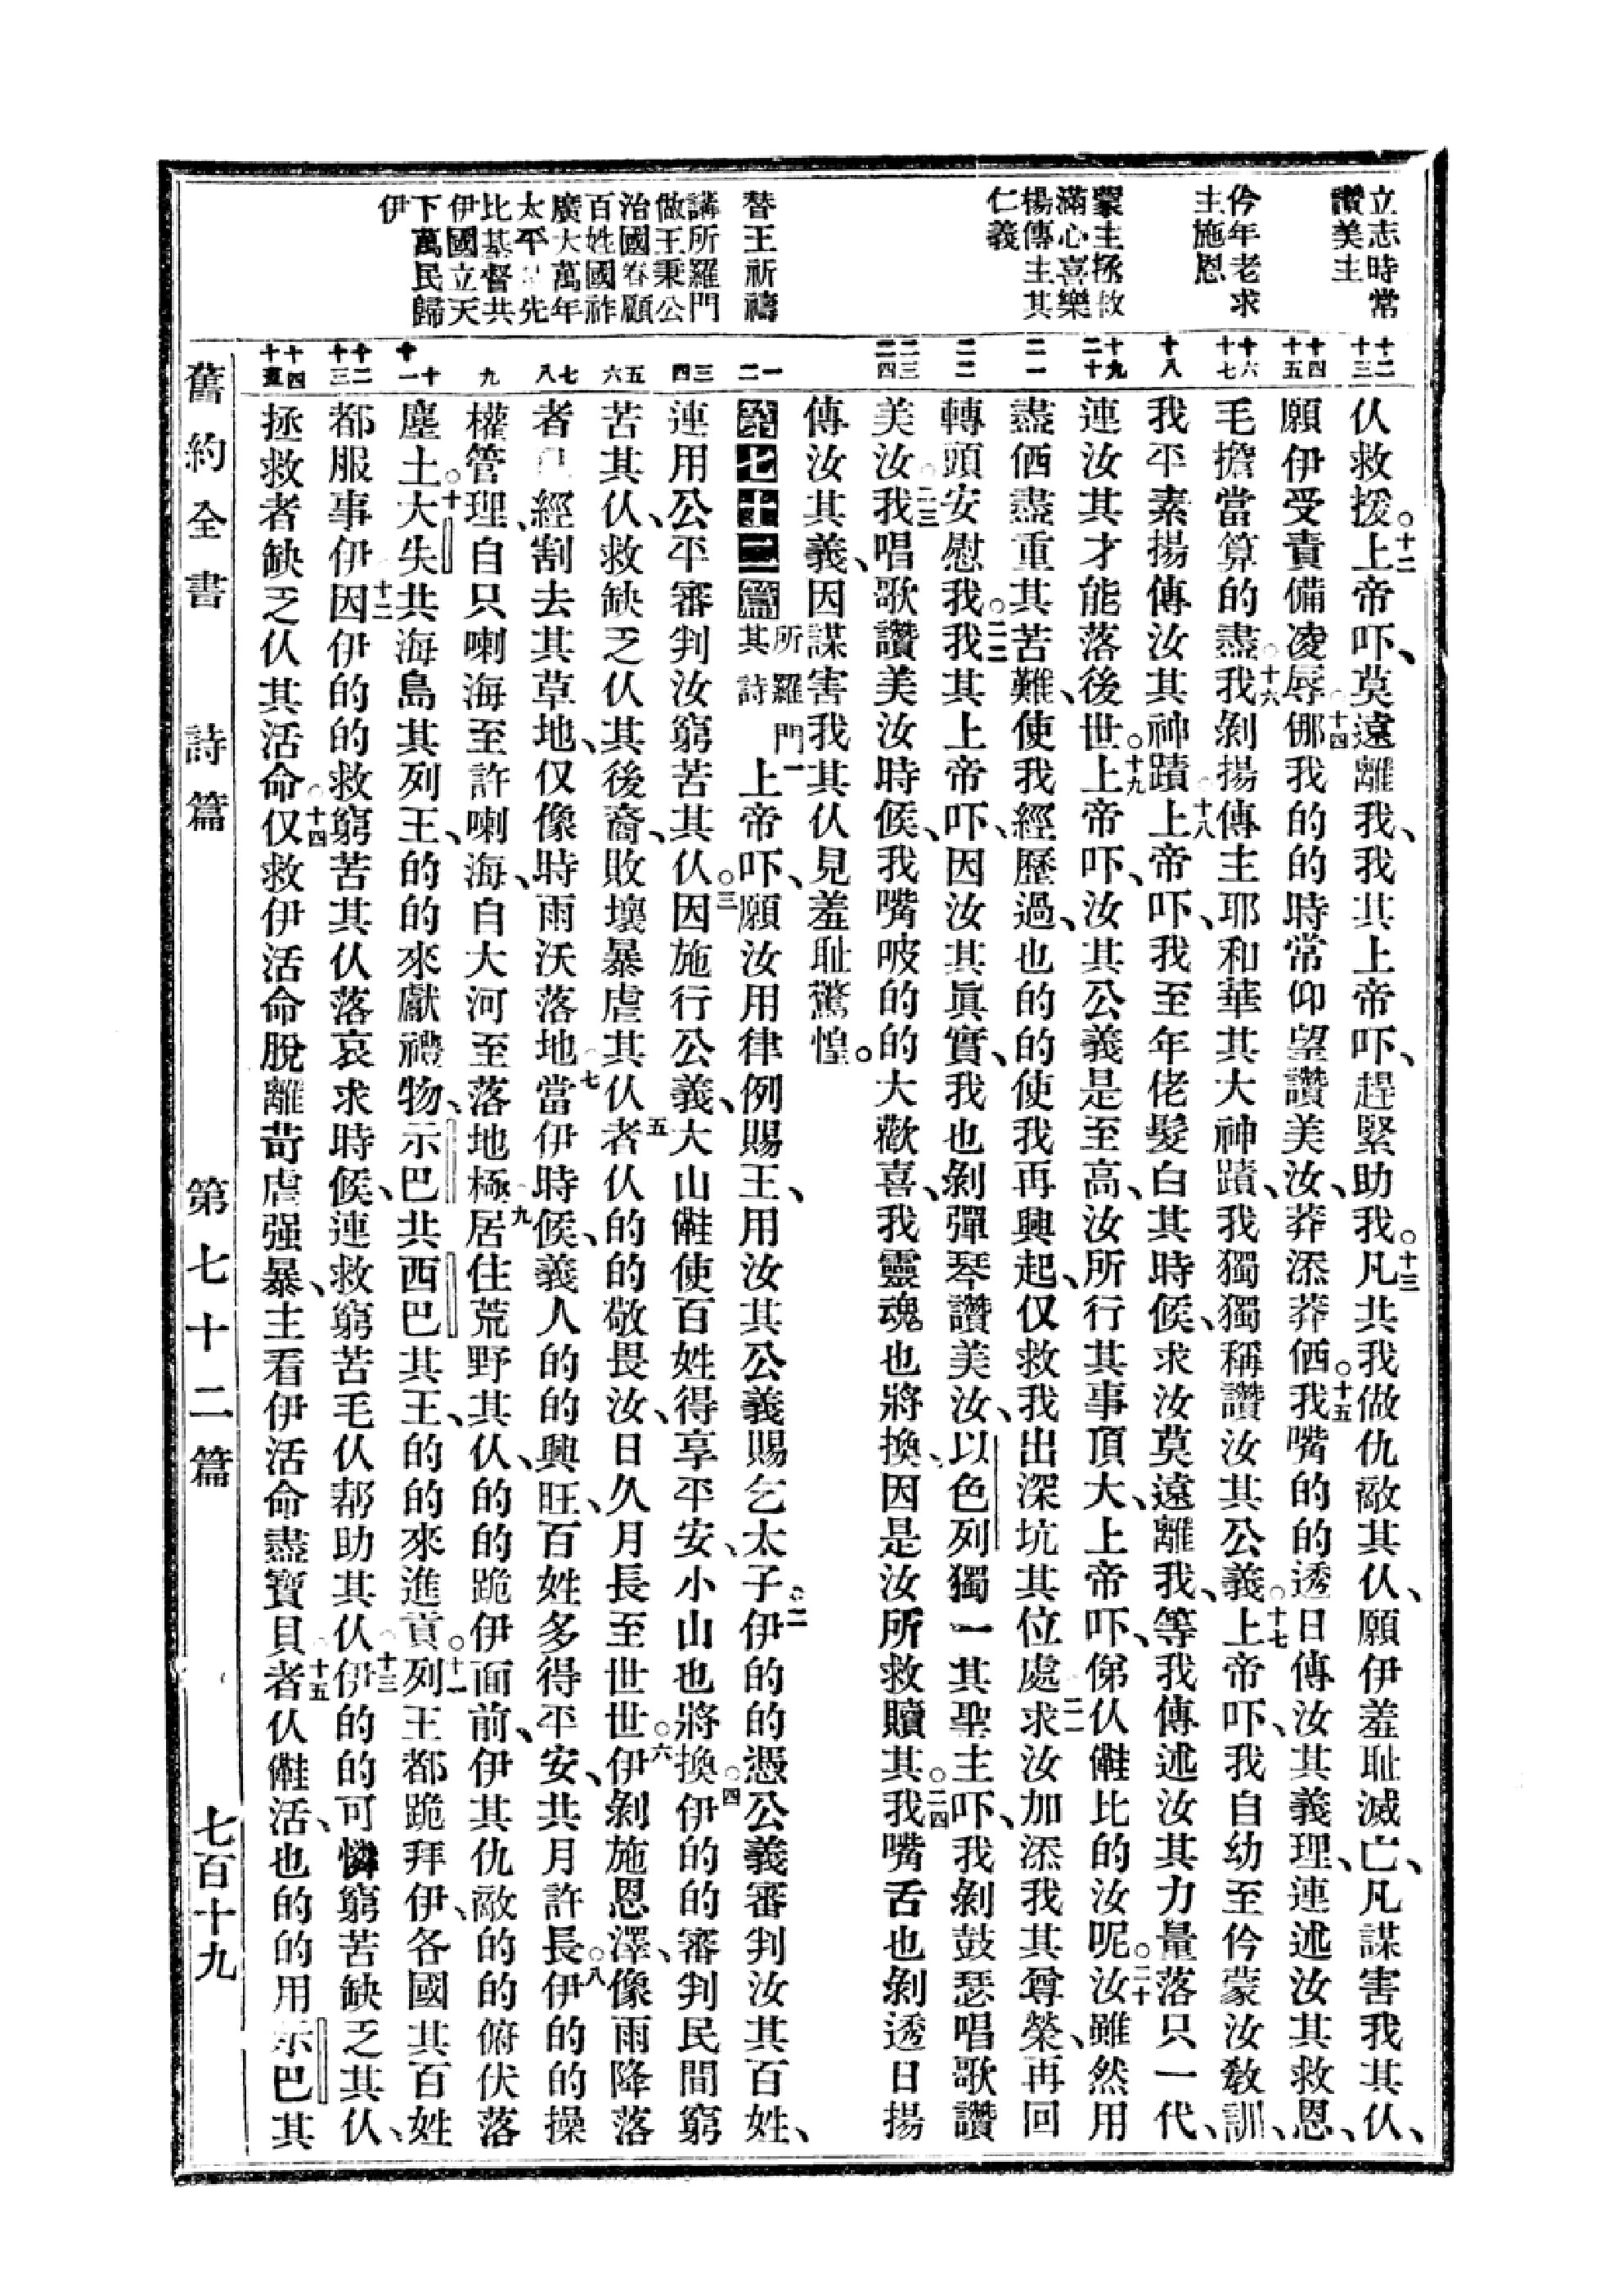 立志時常
讚美主
仱年老求
主施恩
蒙主拯救
滿心喜樂
揚傳主其
仁義
替王祈禱
講所羅門
做王秉公
治國眷顧
百姓國祚
廣大萬年
太平 先
比基督共
伊國立天
下萬民歸
伊
十二
十三
十四
十五
十六
十七
十八
十九
二十
二一
二二
二三
二四
一
二
三
四
五
六
七
八
九
十
十一
十二
十三
十四
十五
仈救援。十二上帝吓、莫遠離我、我其上帝吓、趕緊助我。十三凡共我做仇敵其仈、願伊羞耻滅亡、凡謀害我其仈、
願伊受責備凌辱。十四挪我的的時常仰望讚美汝、莽添莽価。十五我嘴的的透日傳汝其義理、連述汝其救恩、
毛擔當算的盡。十六我剝揚傳主耶和華其大神蹟、我獨獨稱讚汝其公義。十七上帝吓、我自幼至仱蒙汝敎訓、
我平素揚傳汝其神蹟。十八上帝吓、我至年佬髮白其時候、求汝莫遠離我、等我傳述汝其力量落只一代、
連汝其才能落後世。十九上帝吓、汝其公義是至高、汝所行其事頂大、上帝吓、俤仈㒰比的汝呢。二十汝雖然用
盡価盡重其苦難、使我經歷過、也的的使我再興起、仅救我出深坑其位處。二一求汝加添我其尊榮、再回
轉頭安慰我。二二我其上帝吓、因汝其眞實、我也剝彈琴讚美汝、以色列獨一其聖主吓、我剝鼓瑟唱歌讚
美汝。二三我唱歌讚美汝時候、我嘴㕹的的大歡喜、我靈魂也將換、因是汝所救贖其。二四我嘴舌也剝透日揚
傳汝其義、因謀害我其仈見羞耻驚惶。
第七十二篇 所羅門其詩 一上帝吓、願汝用律例賜王、用汝其公義賜乞太子。二伊的的憑公義審判汝其百姓、
連用公平審判汝窮苦其仈。三因施行公義、大山㒰使百姓得享平安、小山也將換。四伊的的審判民間窮
苦其仈、救缺乏仈其後裔、敗壞暴虐其仈。五者仈的的敬畏汝、日久月長至世世。六伊剝施恩澤、像雨降落
者 經割去其草地、仅像時雨沃落地。七當伊時候、義人的的興旺、百姓多得平安、共月許長。八伊的的操
權管理、自只喇海至許喇海、自大河至落地極。九居住荒野其仈、的的跪伊面前、伊其仇敵的的俯伏落
塵土。十大失共海島其列王、的的來獻禮物、示巴共西巴其王、的的來進貢。十一列王都跪拜伊、各國其百姓
都服事伊。十二因伊的的救窮苦其仈落哀求時候、連救窮苦毛仈幫助其仈。十三伊的的可憐窮苦缺乏其仈、
拯救者缺乏仈其活命。十四仅救伊活命脫離苛虐强暴、主看伊活命盡寶貝。十五者仈㒰活、也的的用示巴其
舊約全書 詩篇 第七十二篇 七百十九